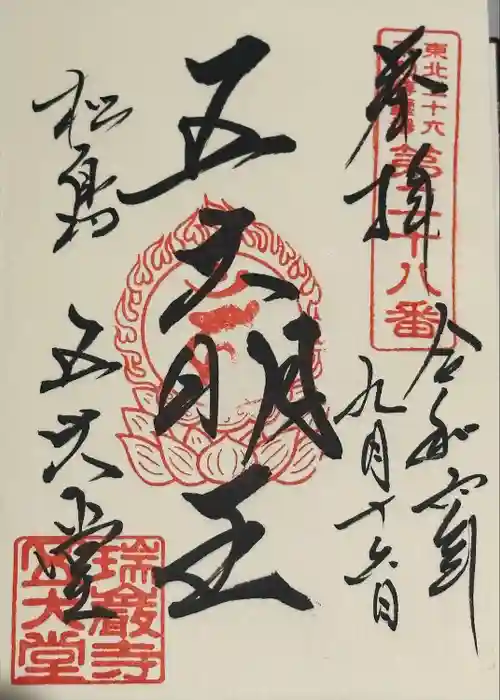 奉拝
東北三十六
不動尊霊場
第二十八番
令和六年
九月十六日
五大明王
松島
五大堂
瑞巌寺
五大堂